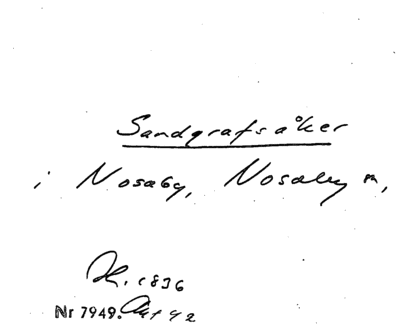 Sandgrafsåker
i Nosaby, Nosaby sn,
H. 1836
Nr 7949. Akt 42